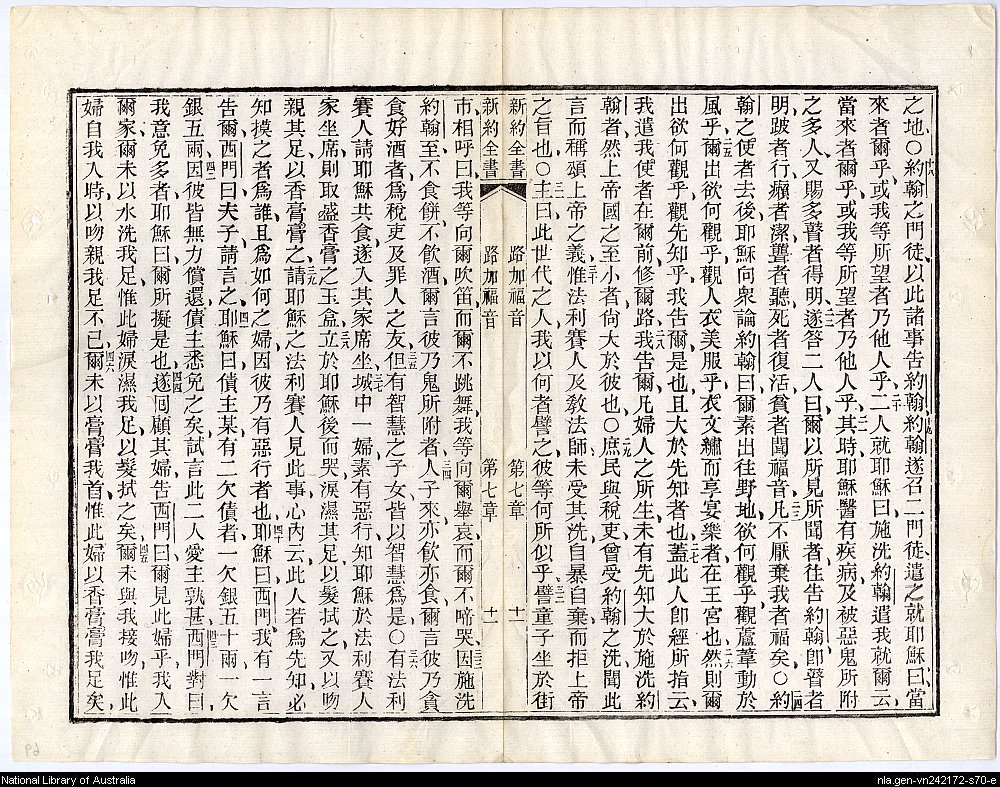 之地○十八約翰之門徒以此諸事告約翰十九約翰遂召二門徒遣之就耶穌曰當
來者爾乎或我等所望者乃他人乎二十二人就耶穌曰施洗約翰遣我就爾云
當來者爾乎或我等所望者乃他人乎二一其時耶穌醫有疾病及被惡鬼所附
之多人又賜多瞽者得明二二遂答二人曰爾以所見所聞者往告約翰卽瞽者
明跛者行癩者潔聾者聽死者復活貧者聞福音二三凡不厭棄我者福矣○二四約
翰之使者去後耶穌向衆論約翰曰爾素出往野地欲何觀乎觀蘆葦動於
風乎二五爾出欲何觀乎觀人衣美服乎衣文繡而享宴樂者在王宮也二六然則爾
出欲何觀乎觀先知乎我告爾是也且大於先知者也二七蓋此人卽經所指云
我遣我使者在爾前修爾路二八我告爾凡婦人之所生未有先知大於施洗約
翰者然上帝國之至小者尙大於彼也○二九庶民與稅吏曾受約翰之洗聞此
言而稱頌上帝之義三十惟法利賽人及敎法師未受其洗自暴自棄而拒上帝
之旨也○三一主曰此世代之人我以何者譬之彼等何所似乎三二譬童子坐於街
新約全書 路加福音 第七章 十一
新約全書 路加福音 第七章 十一
市相呼曰我等向爾吹笛而爾不跳舞我等向爾舉哀而爾不啼哭三三因施洗
約翰至不食餅不飲酒爾言彼乃鬼所附者三四人子來亦飲亦食爾言彼乃貪
食好酒者爲稅吏及罪人之友三五但有智慧之子女皆以智慧爲是○三六有法利
賽人請耶穌共食遂入其家席坐三七城中一婦素有惡行知耶穌於法利賽人
家坐席則取盛香膏之玉盒三八立於耶穌後而哭淚濕其足以髮拭之又以吻
親其足以香膏膏之三九請耶穌之法利賽人見此事心內云此人若爲先知必
知摸之者爲誰且爲如何之婦因彼乃有惡行者也四十耶穌曰西門我有一言
告爾西門曰夫子請言之四一耶穌曰債主某有二欠債者一欠銀五十兩一欠
銀五兩四二因彼皆無力償還債主悉免之矣試言此二人愛主孰甚四三西門對曰
我意免多者耶穌曰爾所擬是也四四遂回顧其婦告西門曰爾見此婦乎我入
爾家爾未以水洗我足惟此婦淚濕我足以髮拭之矣四五爾未與我接吻惟此
婦自我入時以吻親我足不已四六爾未以膏膏我首惟此婦以香膏膏我足矣
National Library of Australia
nla.gen-vn242172-s70-e